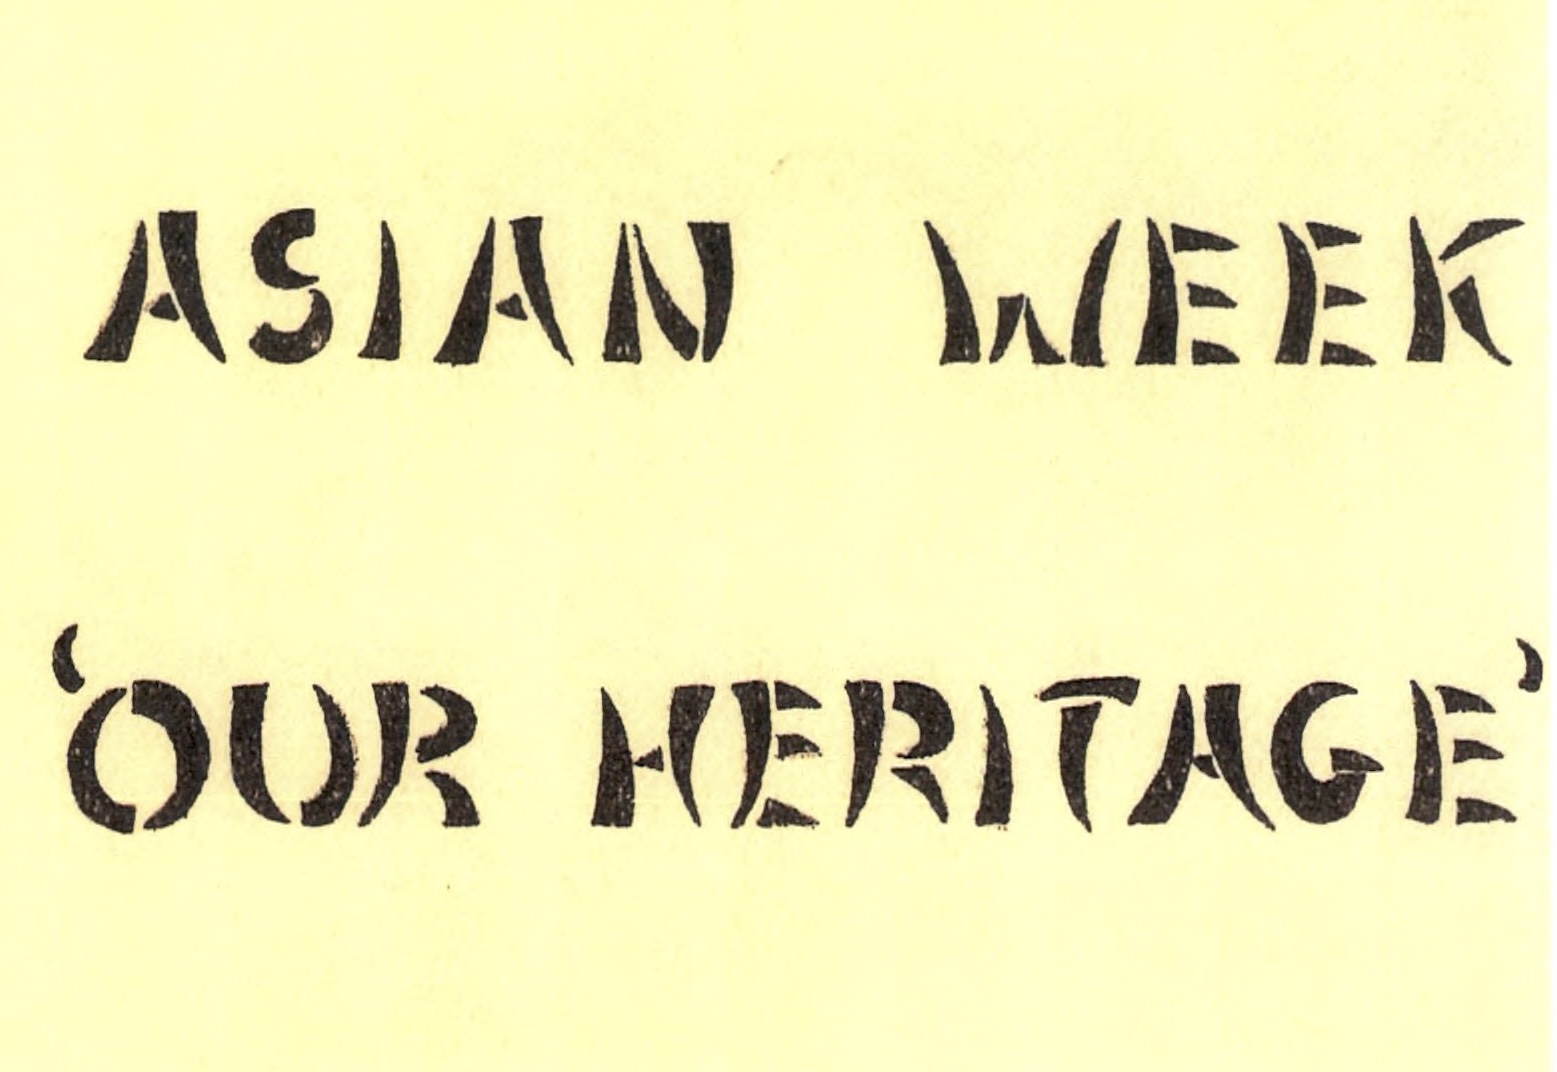 ASIAN WEEK
‘OUR HERITAGE’